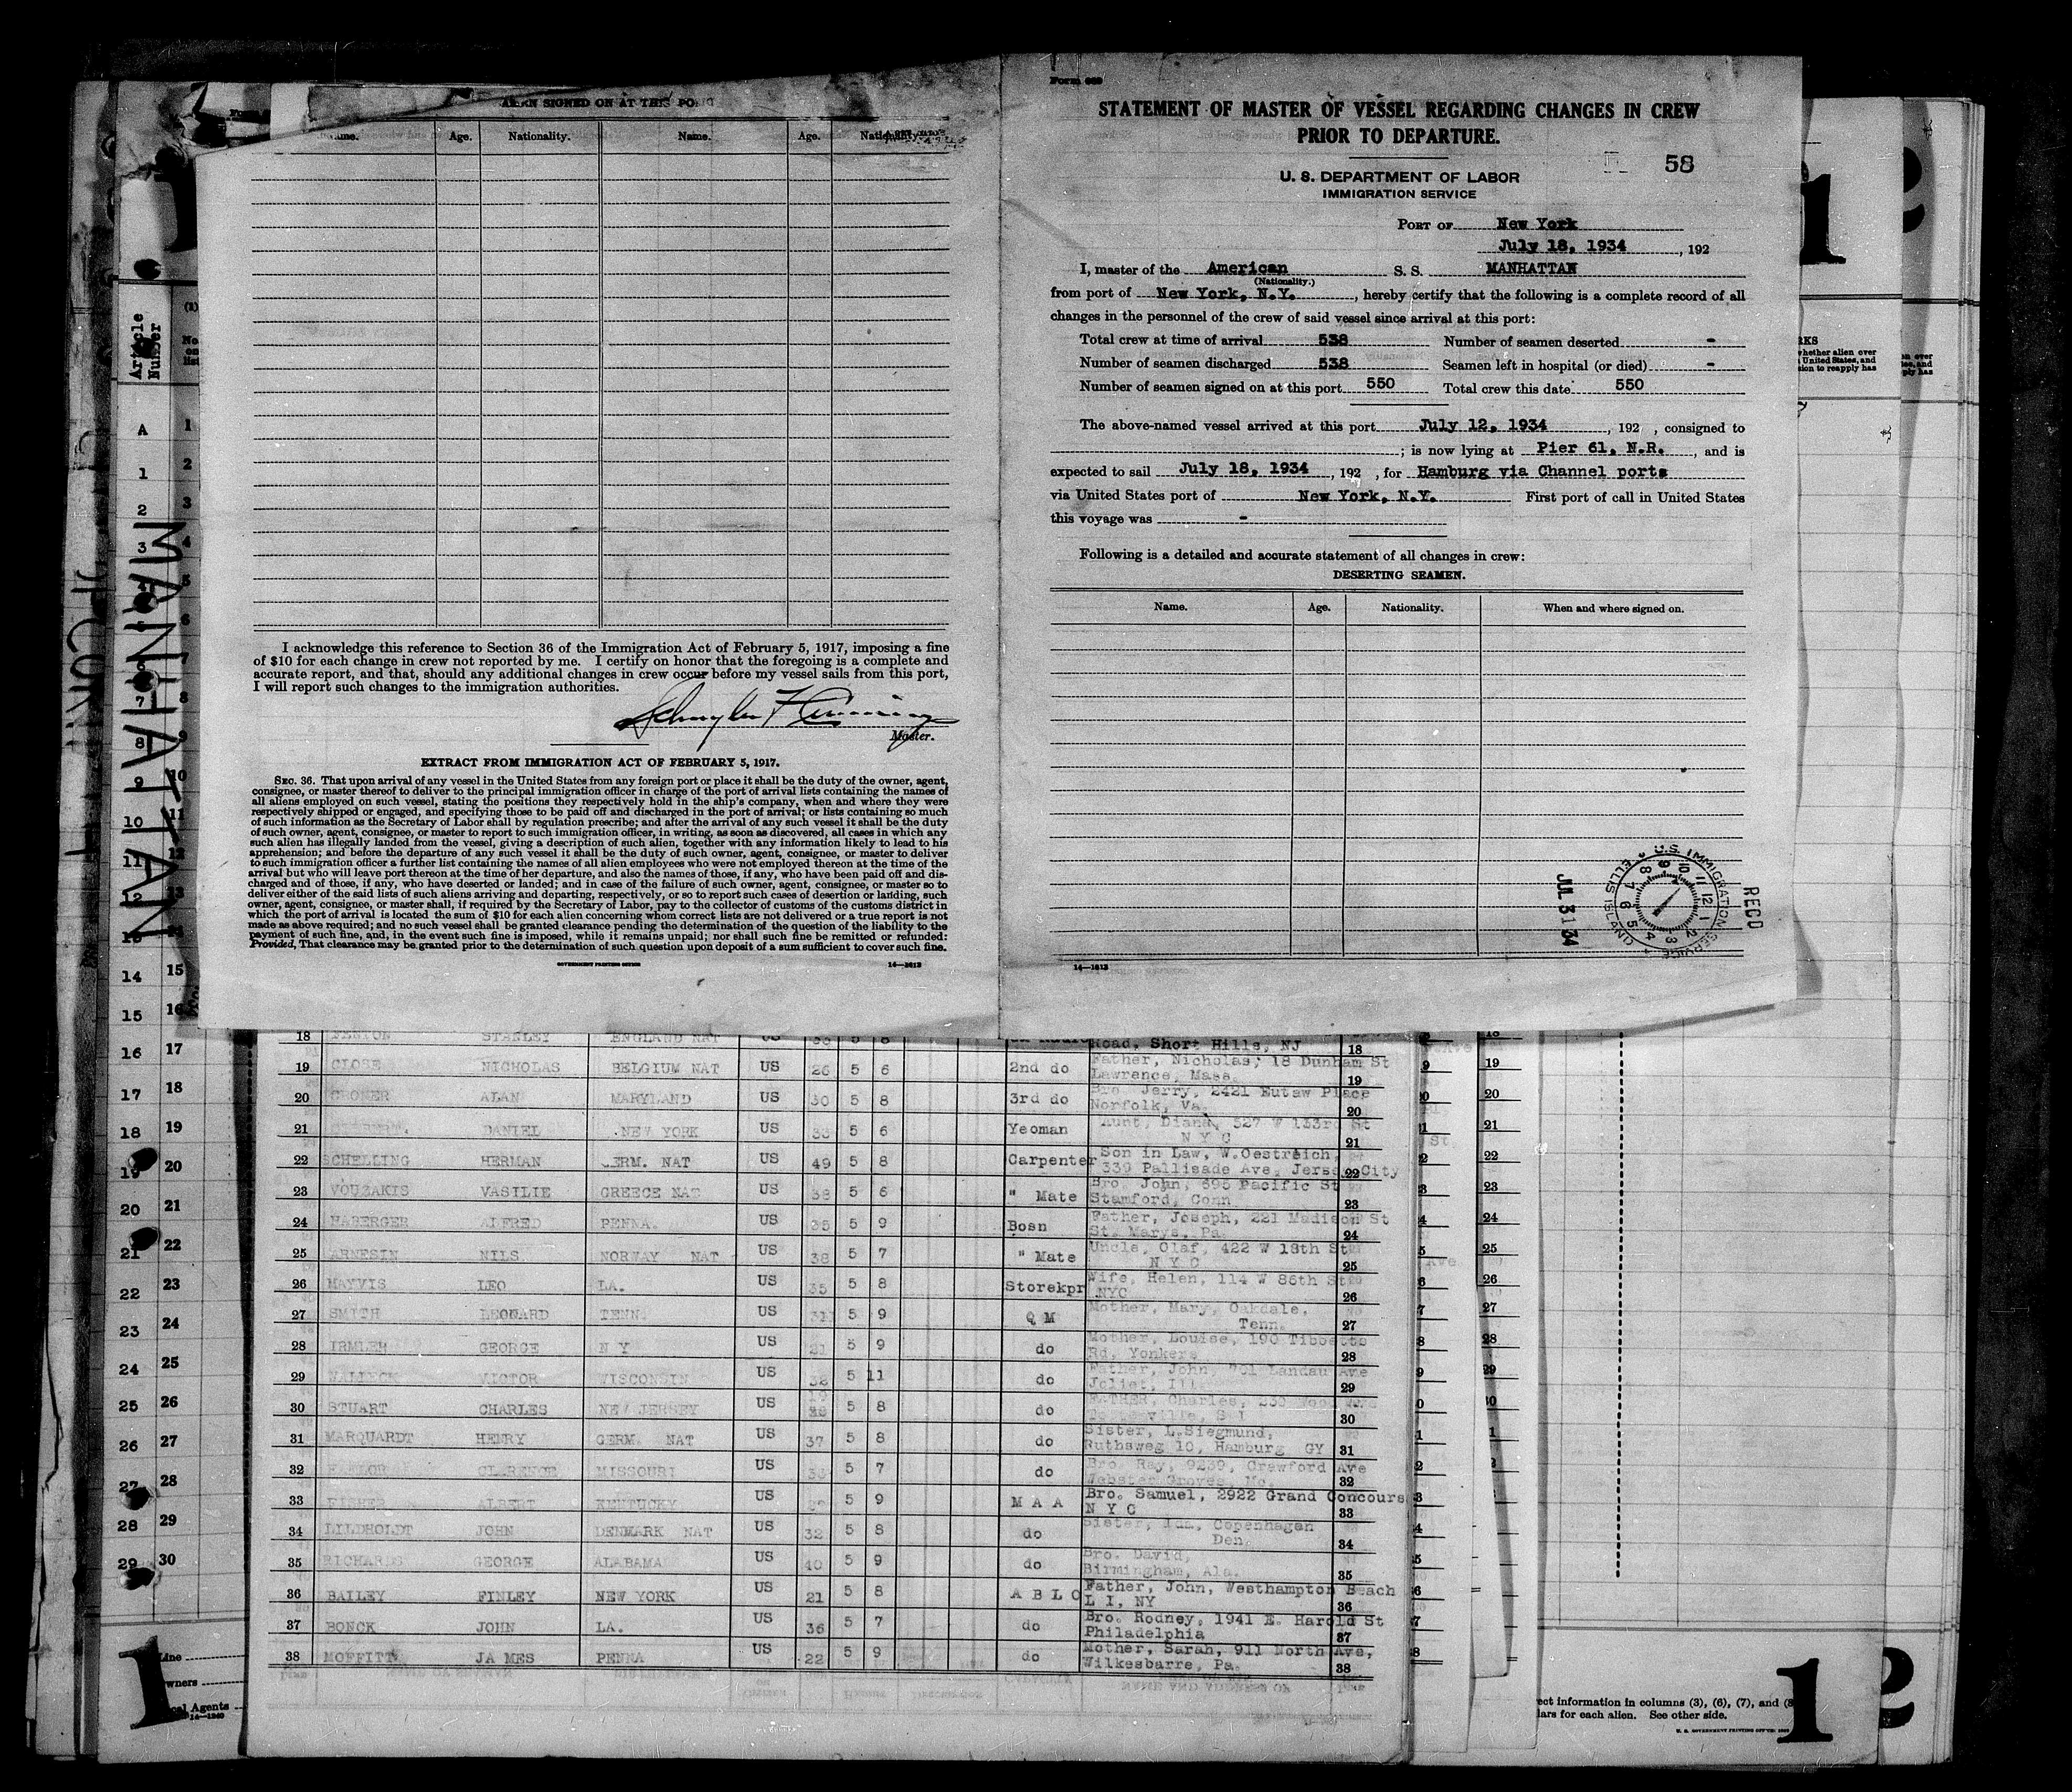 ALIEN SIGNED ON AT THIS PO
Name. Age. Nationality. Name. Age. Nationality.
I acknowledge this reference to Section 36 of the Immigration Act of February 5, 1917, imposing a fine
of $10 for each change in crew not reported by me. I certify on honor that the foregoing is a complete and
accurate report, and that, should any additional changes in crew occur before my vessel sails from this port,
I will report such changes to the immigration authorities.
Master.
EXTRACT FROM IMMIGRATION ACT OF FEBRUARY 5, 1917.
SEC. 36. That upon arrival of any vessel in the United States from any foreign port or place it shall be the duty of the owner, agent,
consignee, or master thereof to deliver to the principal immigration officer in charge of the port of arrival lists containing the names of
all aliens employed on such vessel, stating the positions they respectively hold in the ship's company, when and where they were
respectively shipped or engaged, and specifying those to be paid off and discharged in the port of arrival; or lists containing so much
of such information as the Secretary of Labor shall by regulation prescribe; and after the arrival of any such vessel it shall be the duty
of such owner, agent, consignee, or master to report to such immigration officer, in writing, as soon as discovered, all cases in which any
such alien has illegally landed from the vessel, giving a description of such alien, together with any information likely to lead to his
apprehension; and before the departure of any such vessel it shall be the duty of such owner, agent, consignee, or master to deliver
to such immigration officer a further list containing the names of all alien employees who were not employed thereon at the time of the
arrival but who will leave port thereon at the time of her departure, and also the names of those, if any, who have been paid off and dis-
charged and of those, if any, who have deserted or landed; and in case of the failure of such owner, agent, consignee, or master so to
deliver either of the said lists of such aliens arriving and departing, respectively, or so to report such cases of desertion or landing, such
owner, agent, consignee, or master shall, if required by the Secretary of Labor, pay to the collector of customs of the customs district in
which the port of arrival is located the sum of $10 for each alien concerning whom correct lists are not delivered or a true report is not
made as above required; and no such vessel shall be granted clearance pending the determination of the question of the liability to the
payment of such fine, and, in the event such fine is imposed, while it remains unpaid; nor shall such fine be remitted or refunded:
Provided, That clearance may be granted prior to the determination of such question upon deposit of a sum sufficient to cover such fine.
GOVERNMENT PRINTING OFFICE 14—1613
Form 689
STATEMENT OF MASTER OF VESSEL REGARDING CHANGES IN CREW
PRIOR TO DEPARTURE.
58
U. S. DEPARTMENT OF LABOR
IMMIGRATION SERVICE
PORT OF New York
July 18, 1934, 192
I, master of the American S. S. MANHATTAN
(Nationality.)
from port of New York, N.Y., hereby certify that the following is a complete record of all
changes in the personnel of the crew of said vessel since arrival at this port:
Total crew at time of arrival 538 Number of seamen deserted -
Number of seamen discharged 538 Seamen left in hospital (or died) -
Number of seamen signed on at this port 550 Total crew this date 550
The above-named vessel arrived at this port July 12, 1934, 192 , consigned to
; is now lying at Pier 61, N.R., and is
expected to sail July 18, 1934, 192 , for Hamburg via Channel ports
via United States port of New York, N.Y. First port of call in United States
this voyage was -
Following is a detailed and accurate statement of all changes in crew:
DESERTING SEAMEN.
Name. Age. Nationality. When and where signed on.
RECD
U.S. IMMIGRATION SERVICE
ELLIS ISLAND
JUL 31 34
14—1613
MANHATTAN
Article Number
18 STANLEY ENGLAND NAT Road, Short Hills, NJ 18
19 CLOSE NICHOLAS BELGIUM NAT US 26 5 6 2nd do Father, Nicholas; 18 Dunham St
Lawrence, Mass. 19
20 CRONER ALAN MARYLAND US 30 5 8 3rd do Bro Jerry, 2421 Eutaw Place
Norfolk, Va. 20
21 DANIEL NEW YORK US 5 6 Yeoman Aunt, Diana, 527 W 133rd St
N Y C 21
22 SCHELLING HERMAN GERM. NAT US 49 5 8 Carpenter Son in Law, W.Oestreich,
339 Pallisade Ave, Jersey City 22
23 VOUZAKIS VASILIE GREECE NAT US 38 5 6 " Mate Bro. John, 695 Pacific St
Stamford, Conn 23
24 HABERGER ALFRED PENNA. US 35 5 9 Bosn Father, Joseph, 221 Madison St
St. Marys, Pa. 24
25 ARNESIN NILS NORWAY NAT US 38 5 7 " Mate Uncle, Olaf, 422 W 18th St
N Y C 25
26 MAYVIS LEO LA. US 35 5 8 Storekpr Wife, Helen, 114 W 86th St
NYC 26
27 SMITH LEONARD TENN. US 31 5 9 Q M Mother, Mary, Oakdale,
Tenn. 27
28 IRMLER GEORGE N Y US 21 5 9 do Mother, Louise, 190 Tibbetts
Rd, Yonkers 28
29 VICTOR WISCONSIN US 32 5 11 do Father, John, 701 Landau Ave
Joliet, Ill. 29
30 STUART CHARLES NEW JERSEY US 5 8 do FATHER, Charles, 230
S I 30
31 MARQUARDT HENRY GERM. NAT US 37 5 8 do Sister, L.Siegmund,
Ruthsweg 10, Hamburg GY 31
32 CLARENCE MISSOURI US 5 7 do Bro. Ray, 9239, Crawford Ave
Webster Groves, Mo. 32
33 FISHER ALBERT KENTUCKY US 5 9 M A A Bro. Samuel, 2922 Grand Concours
N Y C 33
34 LILDHOLDT JOHN DENMARK NAT US 32 5 8 do Sister, Ida, Copenhagen
Den. 34
35 RICHARDS GEORGE ALABAMA US 40 5 9 do Bro. David,
Birmingham, Ala. 35
36 BAILEY FINLEY NEW YORK US 21 5 8 A B L C Father, John, Westhampton Beach
L I, NY 36
37 BONCK JOHN LA. US 36 5 7 do Bro. Rodney, 1941 E. Harold St
Philadelphia 37
38 MOFFITT JA MES PENNA US 22 5 9 do Mother, Sarah, 911 North Ave,
Wilkesbarre, Pa. 38
ect information in columns (3), (6), (7), and (8
lars for each alien. See other side.
1
2